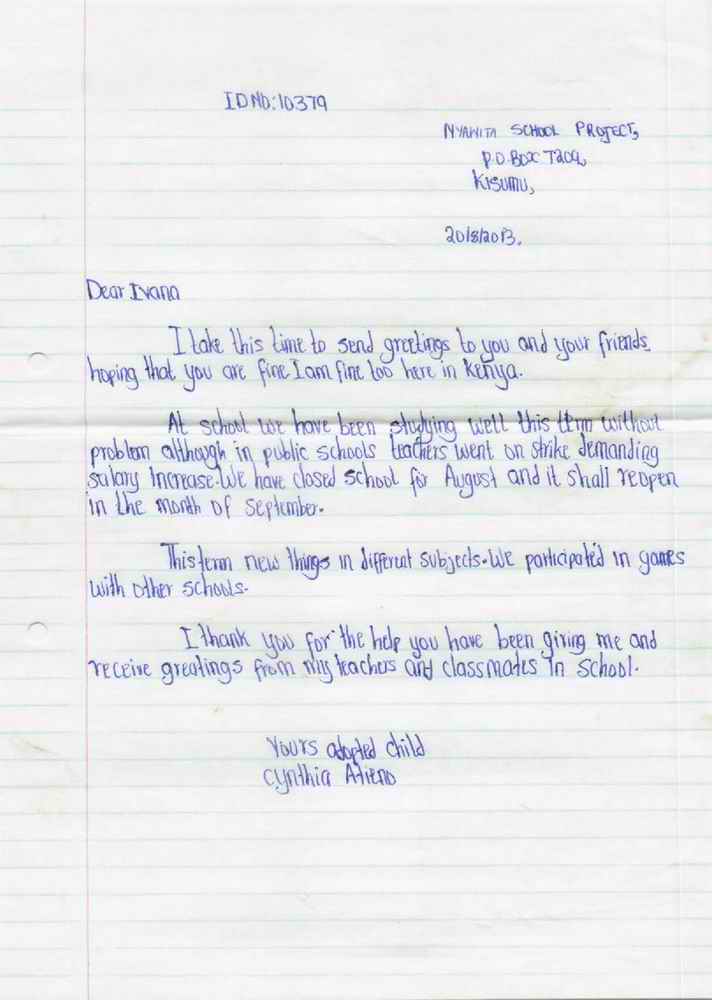 ID NO: 10379
NYAWITA SCHOOL PROJECT,
P.O. BOX 7209,
KISUMU,
20/8/2013.
Dear Ivana
I take this time to send greetings to you and your friends
hoping that you are fine. I am fine too here in Kenya.
At school we have been studying well this term without
problem although in public schools teachers went on strike demanding
salary increase. We have closed school for August and it shall reopen
in the month of September.
This term new things in different subjects. We participated in games
with other schools.
I thank you for the help you have been giving me and
receive greatings from my teachers and classmates in school.
Yours adopted child
Cynthia Atieno